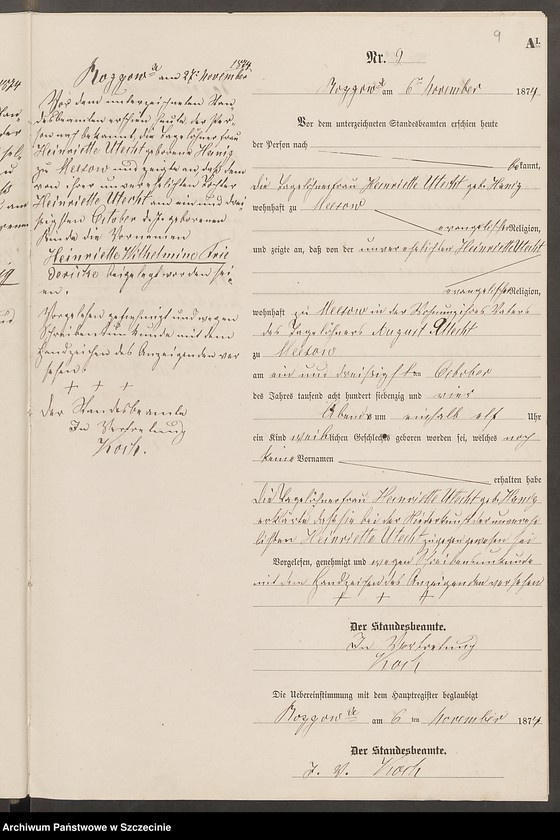 9
A1.
Nr. 9
Roggow A am 6ten November 1874.
Vor dem unterzeichneten Standesbeamten erschien heute
der Person nach
bekannt,
die Tagelöhnerfrau Henriette Utecht geb. Hanig
wohnhaft zu Meesow
evangelischer Religion,
und zeigte an, daß von der unverehelichten Heinriette Utecht
evangelischer Religion,
wohnhaft zu Meesow in der Wohnung ihres Vaters
des Tagelöhners August Utecht
zu Meesow
am ein und dreißigsten October
des Jahres tausend acht hundert siebenzig und vier
Abends um einhalb elf Uhr
ein Kind weiblichen Geschlechts geboren worden sei, welches noch
keine Vornamen
erhalten habe
Die Tagelöhnerfrau Heinriette Utecht geb. Hanig
erklärte daß sie bei der Niederkunft der unverehe-
lichten Heinriette Utecht zugegen gewesen sei
Vorgelesen, genehmigt und wegen Schreibensunkunde
mit dem Handzeichen des Anzeigenden versehen
+ + +
Der Standesbeamte.
In Vertretung
Koch
Die Uebereinstimmung mit dem Hauptregister beglaubigt
Roggow A am 6 ten November 1874.
Der Standesbeamte.
J. V. Koch
Roggow A am 27t November 1874.
Vor dem unterzeichneten Stan-
desbeamten erschien heute der Per-
son nach bekannt, die Tagelöhnerfrau
Heinriette Utecht geborene Hanig
zu Meesow und zeigte an daß dem
von ihrer unverehelichten Tochter
Heinriette Utecht am ein und drei-
ßigsten October d. J. geborenen
Kinde die Vornamen
Heinriette Wilhelmine Frie
dericke beigelegt worden sei-
en.
Vorgelesen genehmigt und wegen
Schreibensunkunde mit dem
Handzeichen des Anzeigenden ver
sehen.
+ + +
Der Standesbeamte
In Vertretung
Koch.
Archiwum Państwowe w Szczecinie